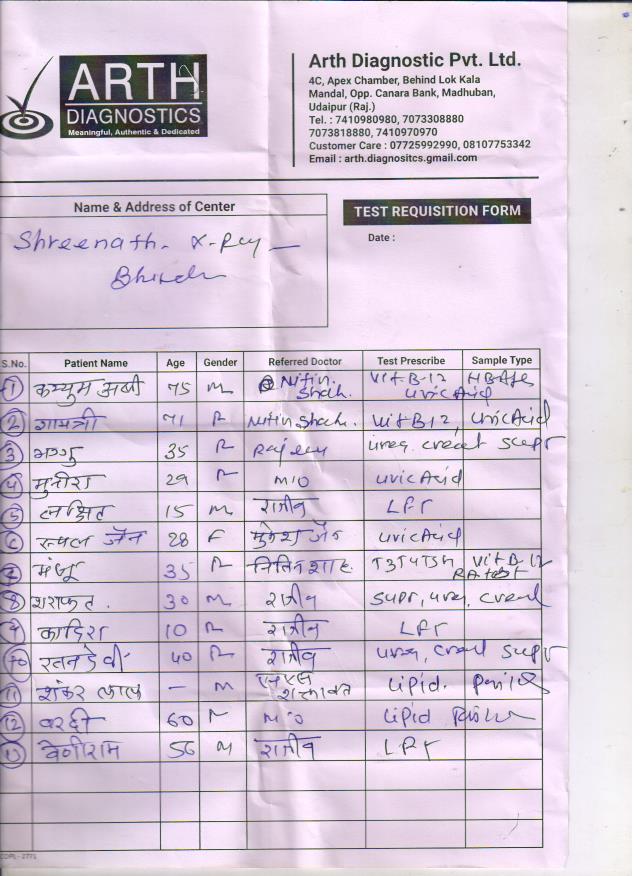 ARTH
DIAGNOSTICS
Meaningful, Authentic & Dedicated
Arth Diagnostic Pvt. Ltd.
4C, Apex Chamber, Behind Lok Kala
Mandal, Opp. Canara Bank, Madhuban,
Udaipur (Raj.)
Tel. : 7410980980, 7073308880
7073818880, 7410970970
Customer Care : 07725992990, 08107753342
Email : arth.diagnositcs.gmail.com
Name & Address of Center
TEST REQUISITION FORM
Shreenath X-Ray
Date :
S.No. Patient Name Age Gender Referred Doctor Test Prescribe Sample Type
1 75 M Nitin Shah. Vit-B-12 Uric Acid
2 गायत्री 71 Nitin Shah. Vit B12, Uric Acid
3 35 urea, creat
4 मुनीरा 29 M/O Uric Acid
5 लक्षित 15 M राजीव LFT
6 जैन 28 F मुकेश जैन Uric Acid
7 मंजू 35 नितिन शाह. T3T4TSH Vit B-12
8 शराफत. 30 M राजीव urea, creat
9 10 राजीव LFT
10 रतन देवी 40 राजीव urea, creat
11 शंकर लाल - M Lipid.
12 वरदी 60 M/O Lipid
13 वेणीराम 56 M राजीव LFT
CDPL - 2771